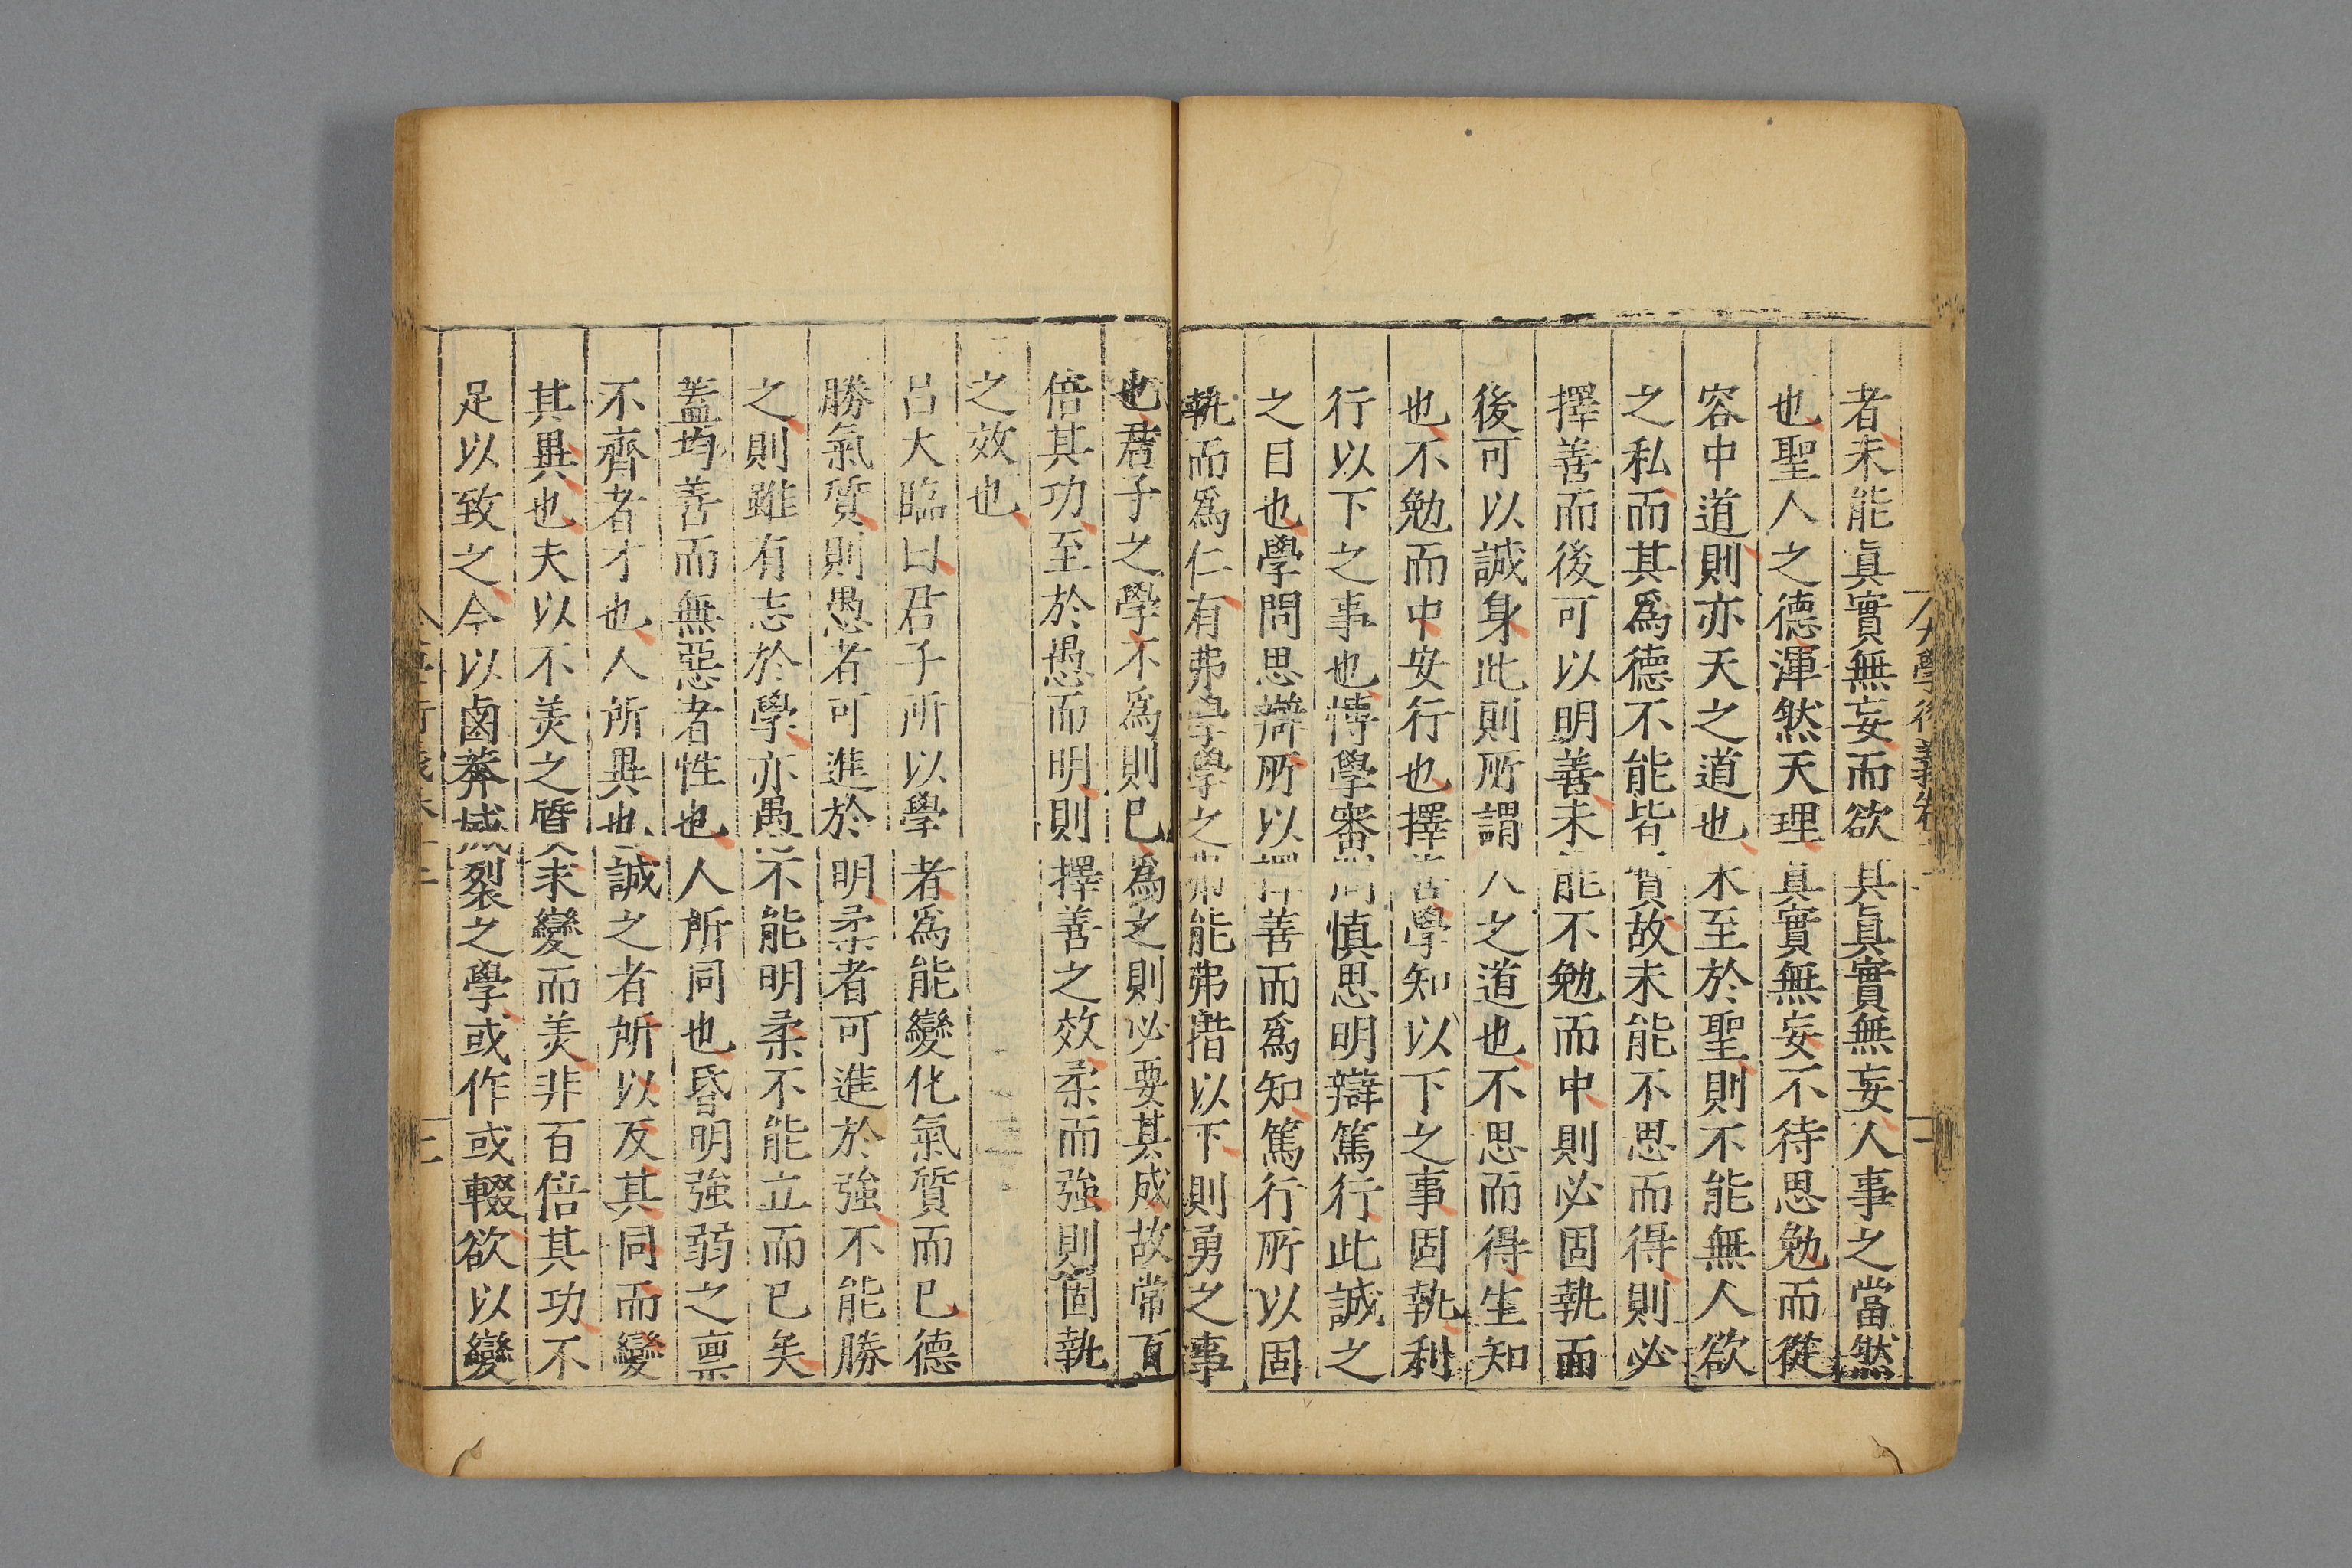 大學衍義卷
者未能真實無妄而欲其真實無妄人事之當然
也聖人之德渾然天理真實無妄不待思勉而從
容中道則亦天之道也未至於聖則不能無人欲
之私而其爲德不能皆實故未能不思而得則必
擇善而後可以明善未能不勉而中則必固執而
後可以誠身此則所謂人之道也不思而得生知
也不勉而中安行也擇善學知以下之事固執利
行以下之事也博學審問慎思明辯篤行此誠之
之目也學問思辯所以擇善而爲知篤行所以固
執而爲仁有弗學學之弗能弗措以下則勇之事
也君子之學不爲則已爲之則必要其成故常百
倍其功至於愚而明則擇善之效柔而強則固執
之效也
呂大臨曰君子所以學者爲能變化氣質而已德
勝氣質則愚者可進於明柔者可進於強不能勝
之則雖有志於學亦愚不能明柔不能立而已矣
蓋均善而無惡者性也人所同也昏明強弱之稟
不齊者才也人所異也誠之者所以反其同而變
其異也夫以不美之質求變而美非百倍其功不
足以致之今以鹵莽滅裂之學或作或輟欲以變